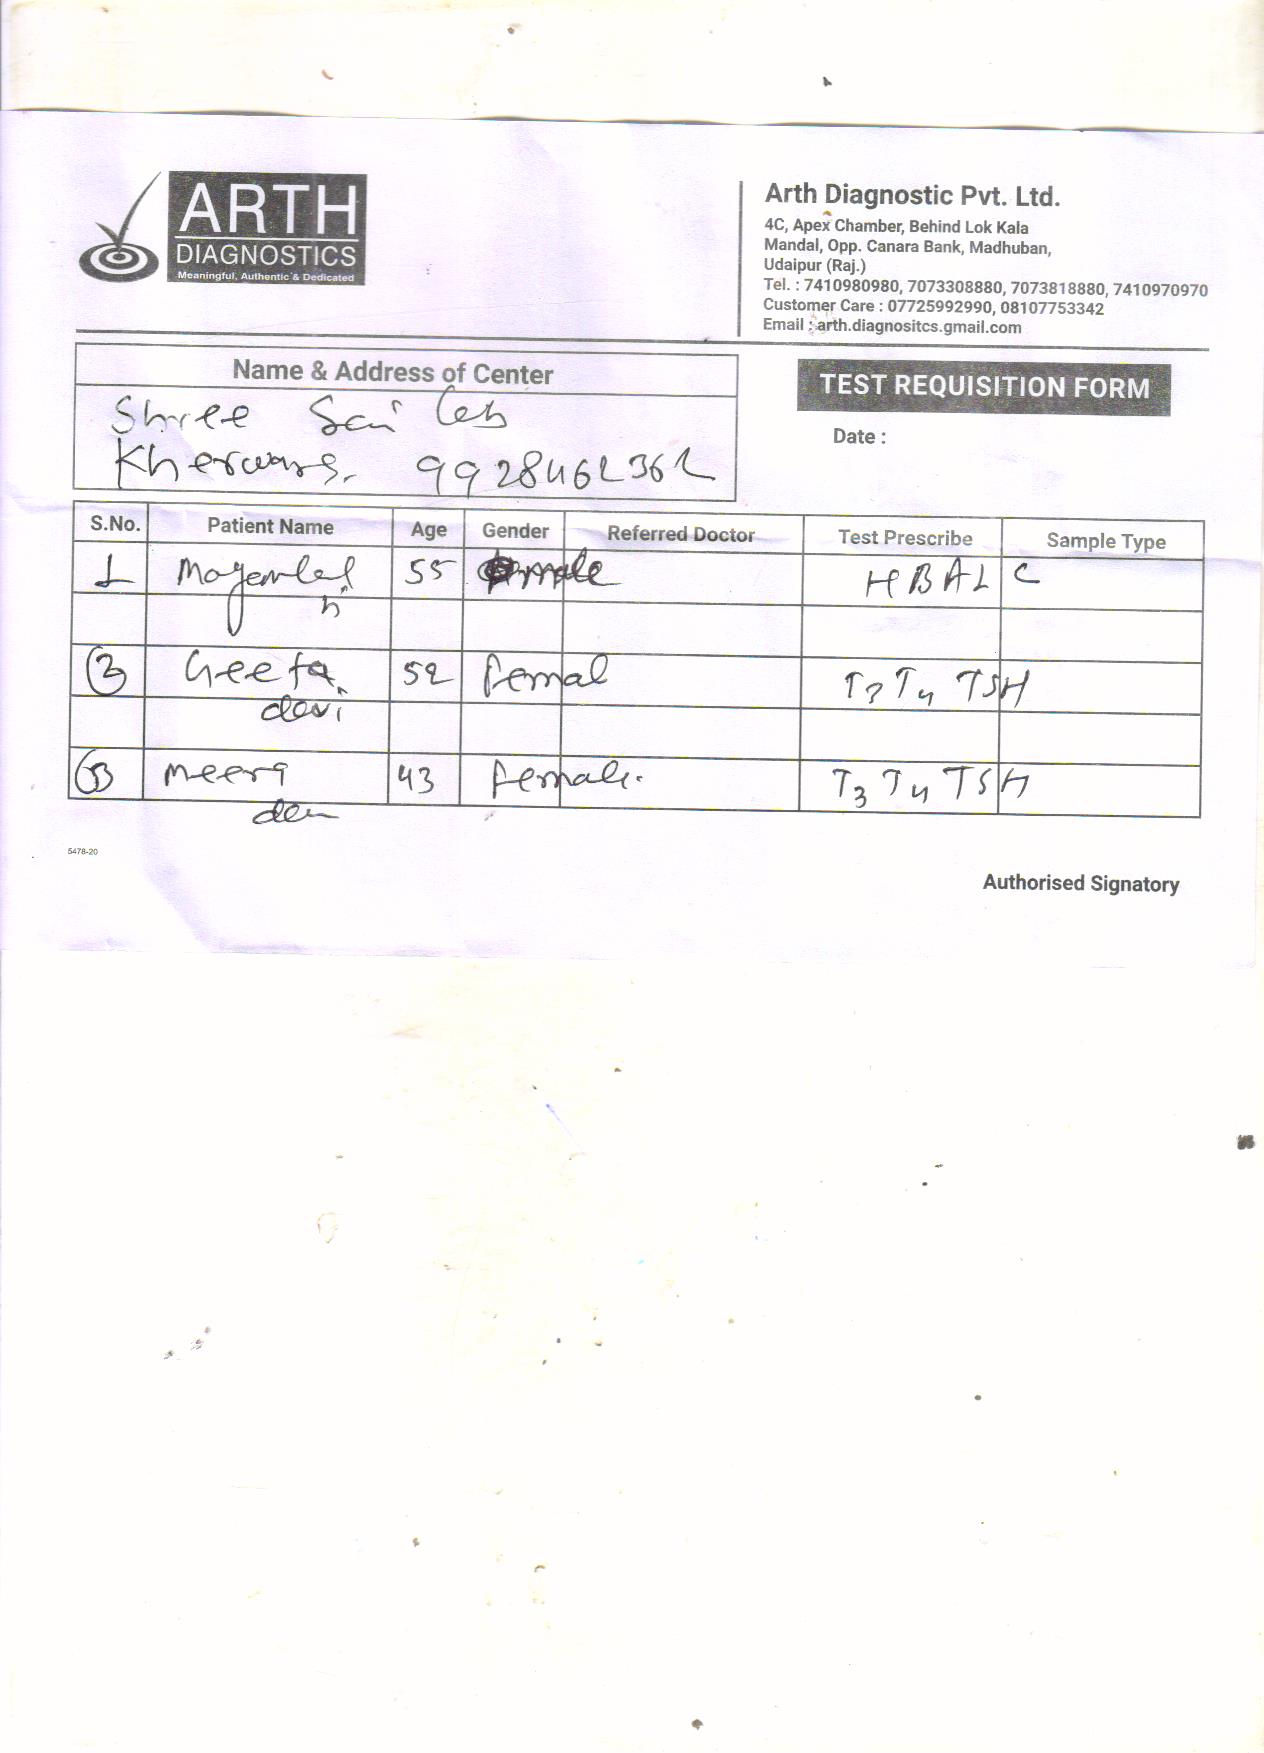 ARTH
DIAGNOSTICS
Meaningful, Authentic & Dedicated
Arth Diagnostic Pvt. Ltd.
4C, Apex Chamber, Behind Lok Kala
Mandal, Opp. Canara Bank, Madhuban,
Udaipur (Raj.)
Tel. : 7410980980, 7073308880, 7073818880, 7410970970
Customer Care : 07725992990, 08107753342
Email : arth.diagnositcs.gmail.com
Name & Address of Center
Shree Sai Leb
9928462362
TEST REQUISITION FORM
Date :
S.No. Patient Name Age Gender Referred Doctor Test Prescribe Sample Type
1 55 male HBA1C
2 Geeta 52 Femal T3 T4 TSH
devi
3 Meera 43 Female. T3 T4 TSH
5478-20
Authorised Signatory